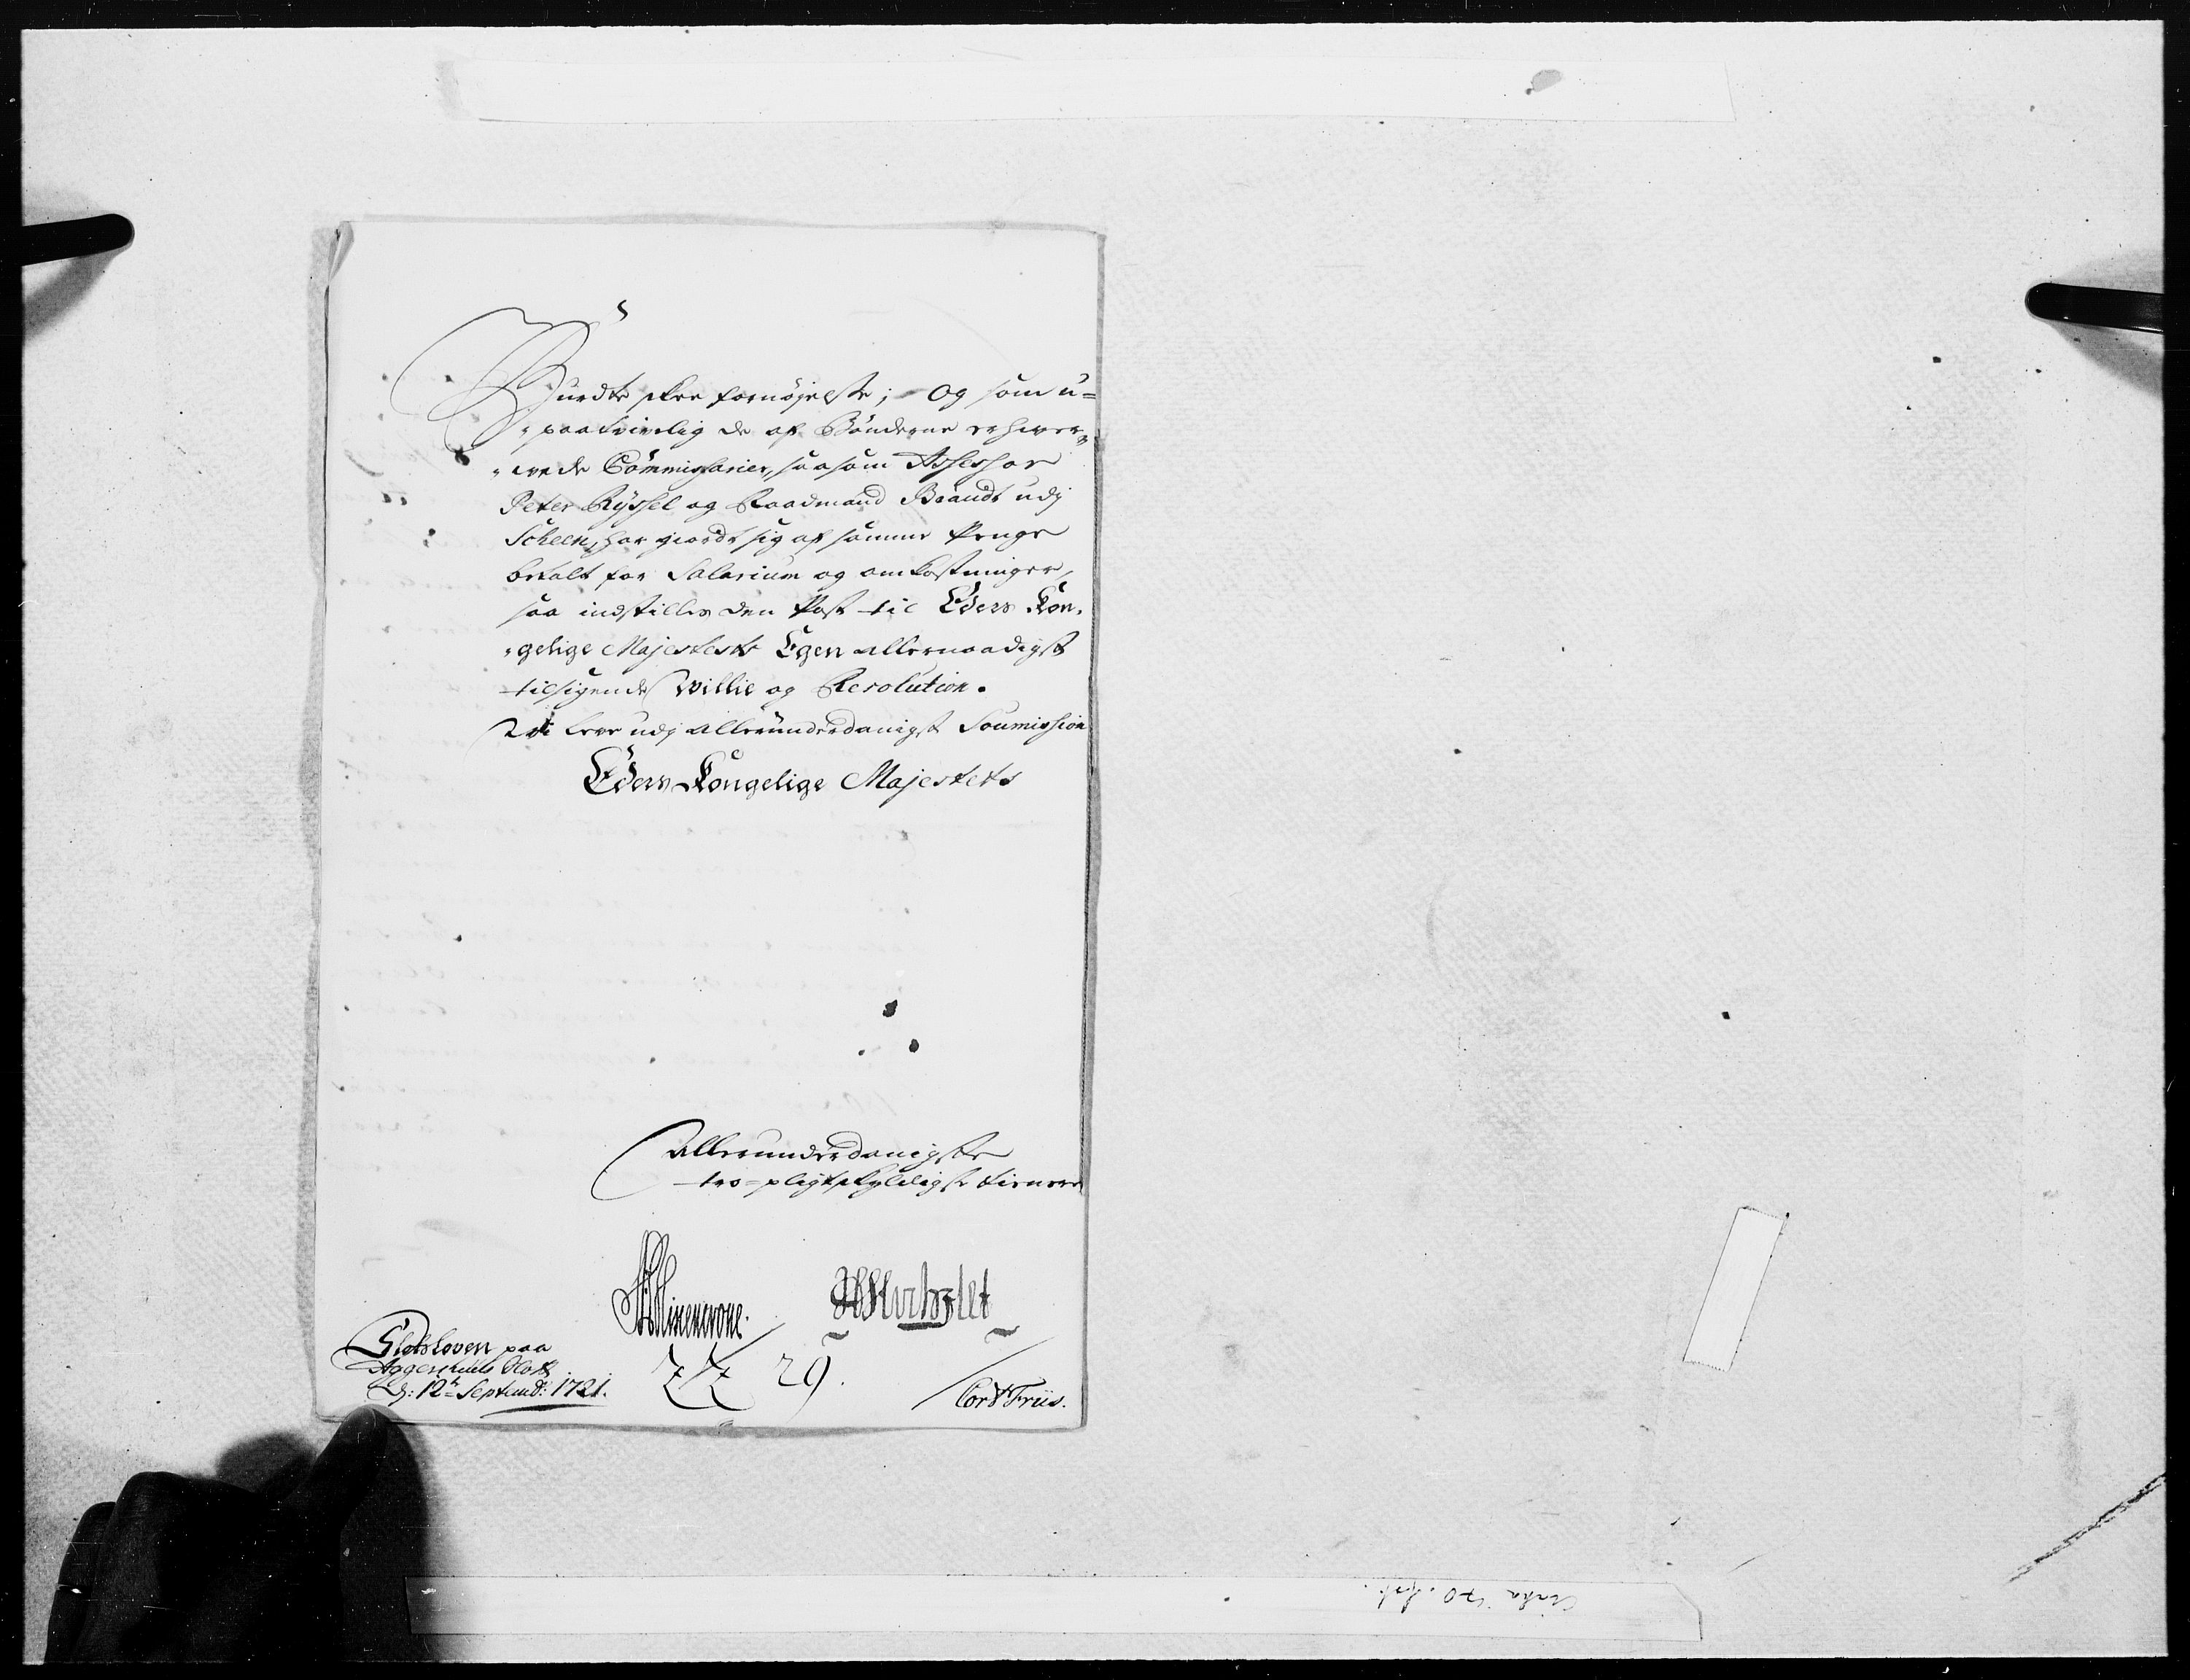 Burdte skee fornøjelse; Og som u=
paatvivlig de af Bönderne erhver=
vede Commissarier, saasom Assessor
Peter Ryssel og Raadmand Brandt udj
Scheen, har giordt sig af samme Penge
betalt for Salarium og omkostninger,
saa indstilles den Post til Eders Kon=
gelige Majestets Egen allernaadigst
tilsigende Willie og Resolution.
Vi leve udj allerunderdanigst Soumission
Eders Kongelige Majestets
allerunderdanigste
troe-pligtskyldigste tienere
Cort Friis.
Slotsloven paa
Aggershuus Slott
d: 12te Septemb: 1721.
29.